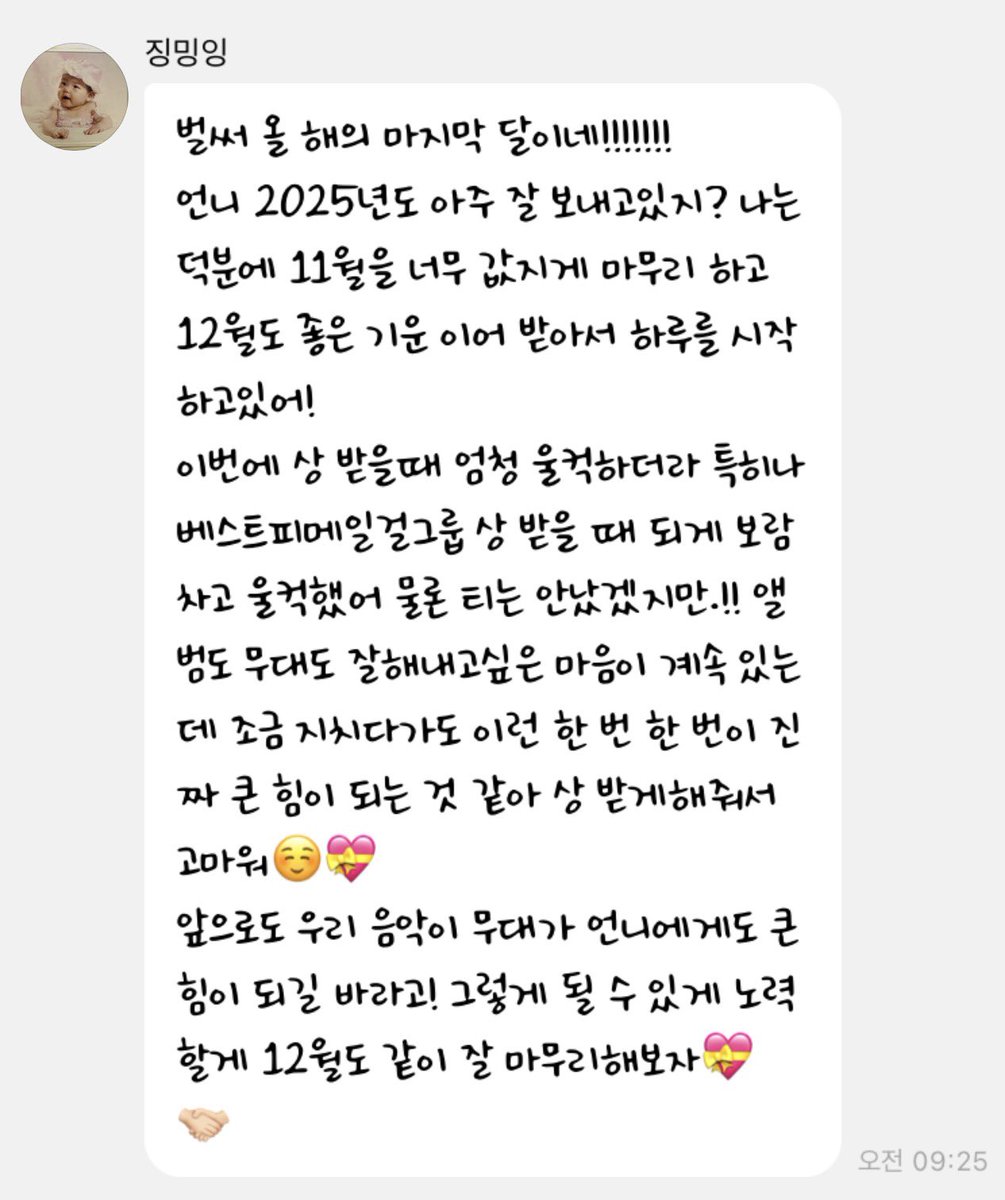 징밍잉
벌써 올 해의 마지막 달이네!!!!!!!!
언니 2025년도 아주 잘 보내고있지? 나는
덕분에 11월을 너무 값지게 마무리 하고
12월도 좋은 기운 이어 받아서 하루를 시작
하고있어!
이번에 상 받을때 엄청 울컥하더라 특히나
베스트피메일걸그룹 상 받을 때 되게 보람
차고 울컥했어 물론 티는 안났겠지만.!! 앨
범도 무대도 잘해내고싶은 마음이 계속 있는
데 조금 지치다가도 이런 한 번 한 번이 진
짜 큰 힘이 되는 것 같아 상 받게해줘서
고마워☺️💝
앞으로도 우리 음악이 무대가 언니에게도 큰
힘이 되길 바라고! 그렇게 될 수 있게 노력
할게 12월도 같이 잘 마무리해보자💝
🤝🏻
오전 09:25